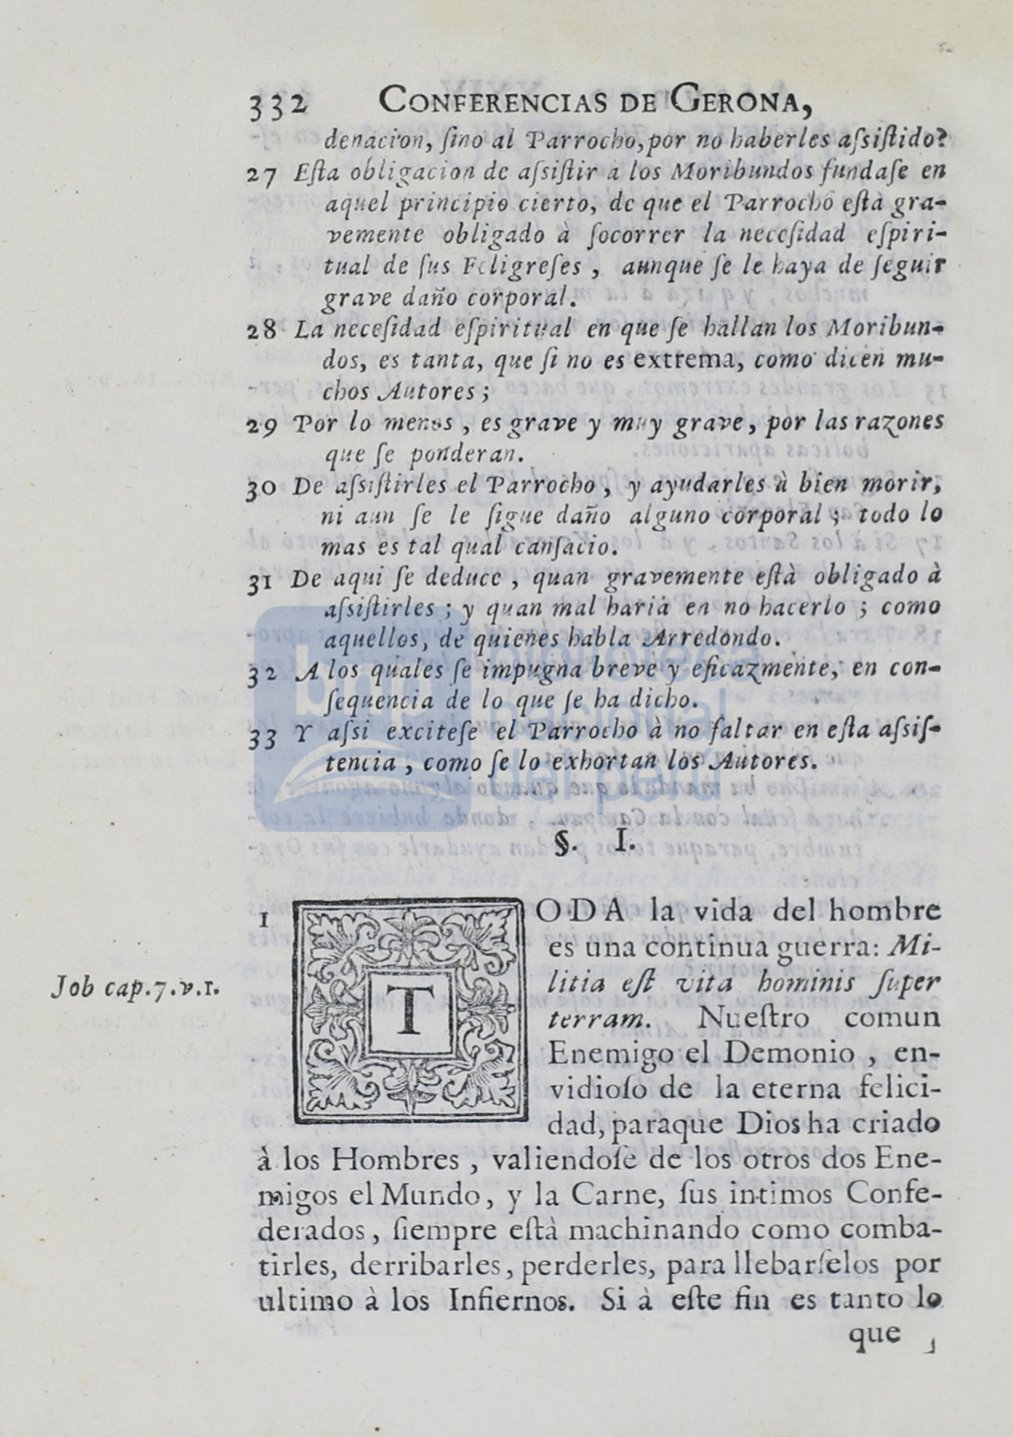 332 CONFERENCIAS DE GERONA,
denacion, ſino al Parrocho, por no haberles aſsiſtido?
27 Eſta obligacion de aſsiſtir à los Moribundos fundaſe en
aquel principio cierto, de que el Parrocho eſtà gra-
vemente obligado à ſocorrer la neceſidad eſpiri-
tual de ſus Feligreſes, aunque ſe le haya de ſeguir
grave daño corporal.
28 La neceſidad eſpiritual en que ſe hallan los Moribun-
dos, es tanta, que ſi no es extrema, como dicen mu-
chos Autores;
29 Por lo menos, es grave y muy grave, por las razones
que ſe ponderan.
30 De aſsiſtirles el Parrocho, y ayudarles à bien morir,
ni aun ſe le ſigue daño alguno corporal; todo lo
mas es tal qual canſacio.
31 De aqui ſe deduce, quan gravemente eſtà obligado à
aſsiſtirles; y quan mal harià en no hacerlo; como
aquellos, de quienes habla Arredondo.
32 A los quales ſe impugna breve y eficazmente, en con-
ſequencia de lo que ſe ha dicho.
33 Y aſsi exciteſe el Parrocho à no faltar en eſta aſsiſ-
tencia, como ſe lo exhortan los Autores.
biblioteca
nacional
del perú
§. I.
1 TODA la vida del hombre
es una continua guerra: Mi-
Job cap.7.v.1.
litia eſt vita hominis ſuper
terram. Nueſtro comun
Enemigo el Demonio, en-
vidioſo de la eterna felici-
dad, paraque Dios ha criado
à los Hombres, valiendoſe de los otros dos Ene-
migos el Mundo, y la Carne, ſus intimos Confe-
derados, ſiempre eſtà machinando como comba-
tirles, derribarles, perderles, para llebarſelos por
ultimo à los Infiernos. Si à eſte fin es tanto lo
que